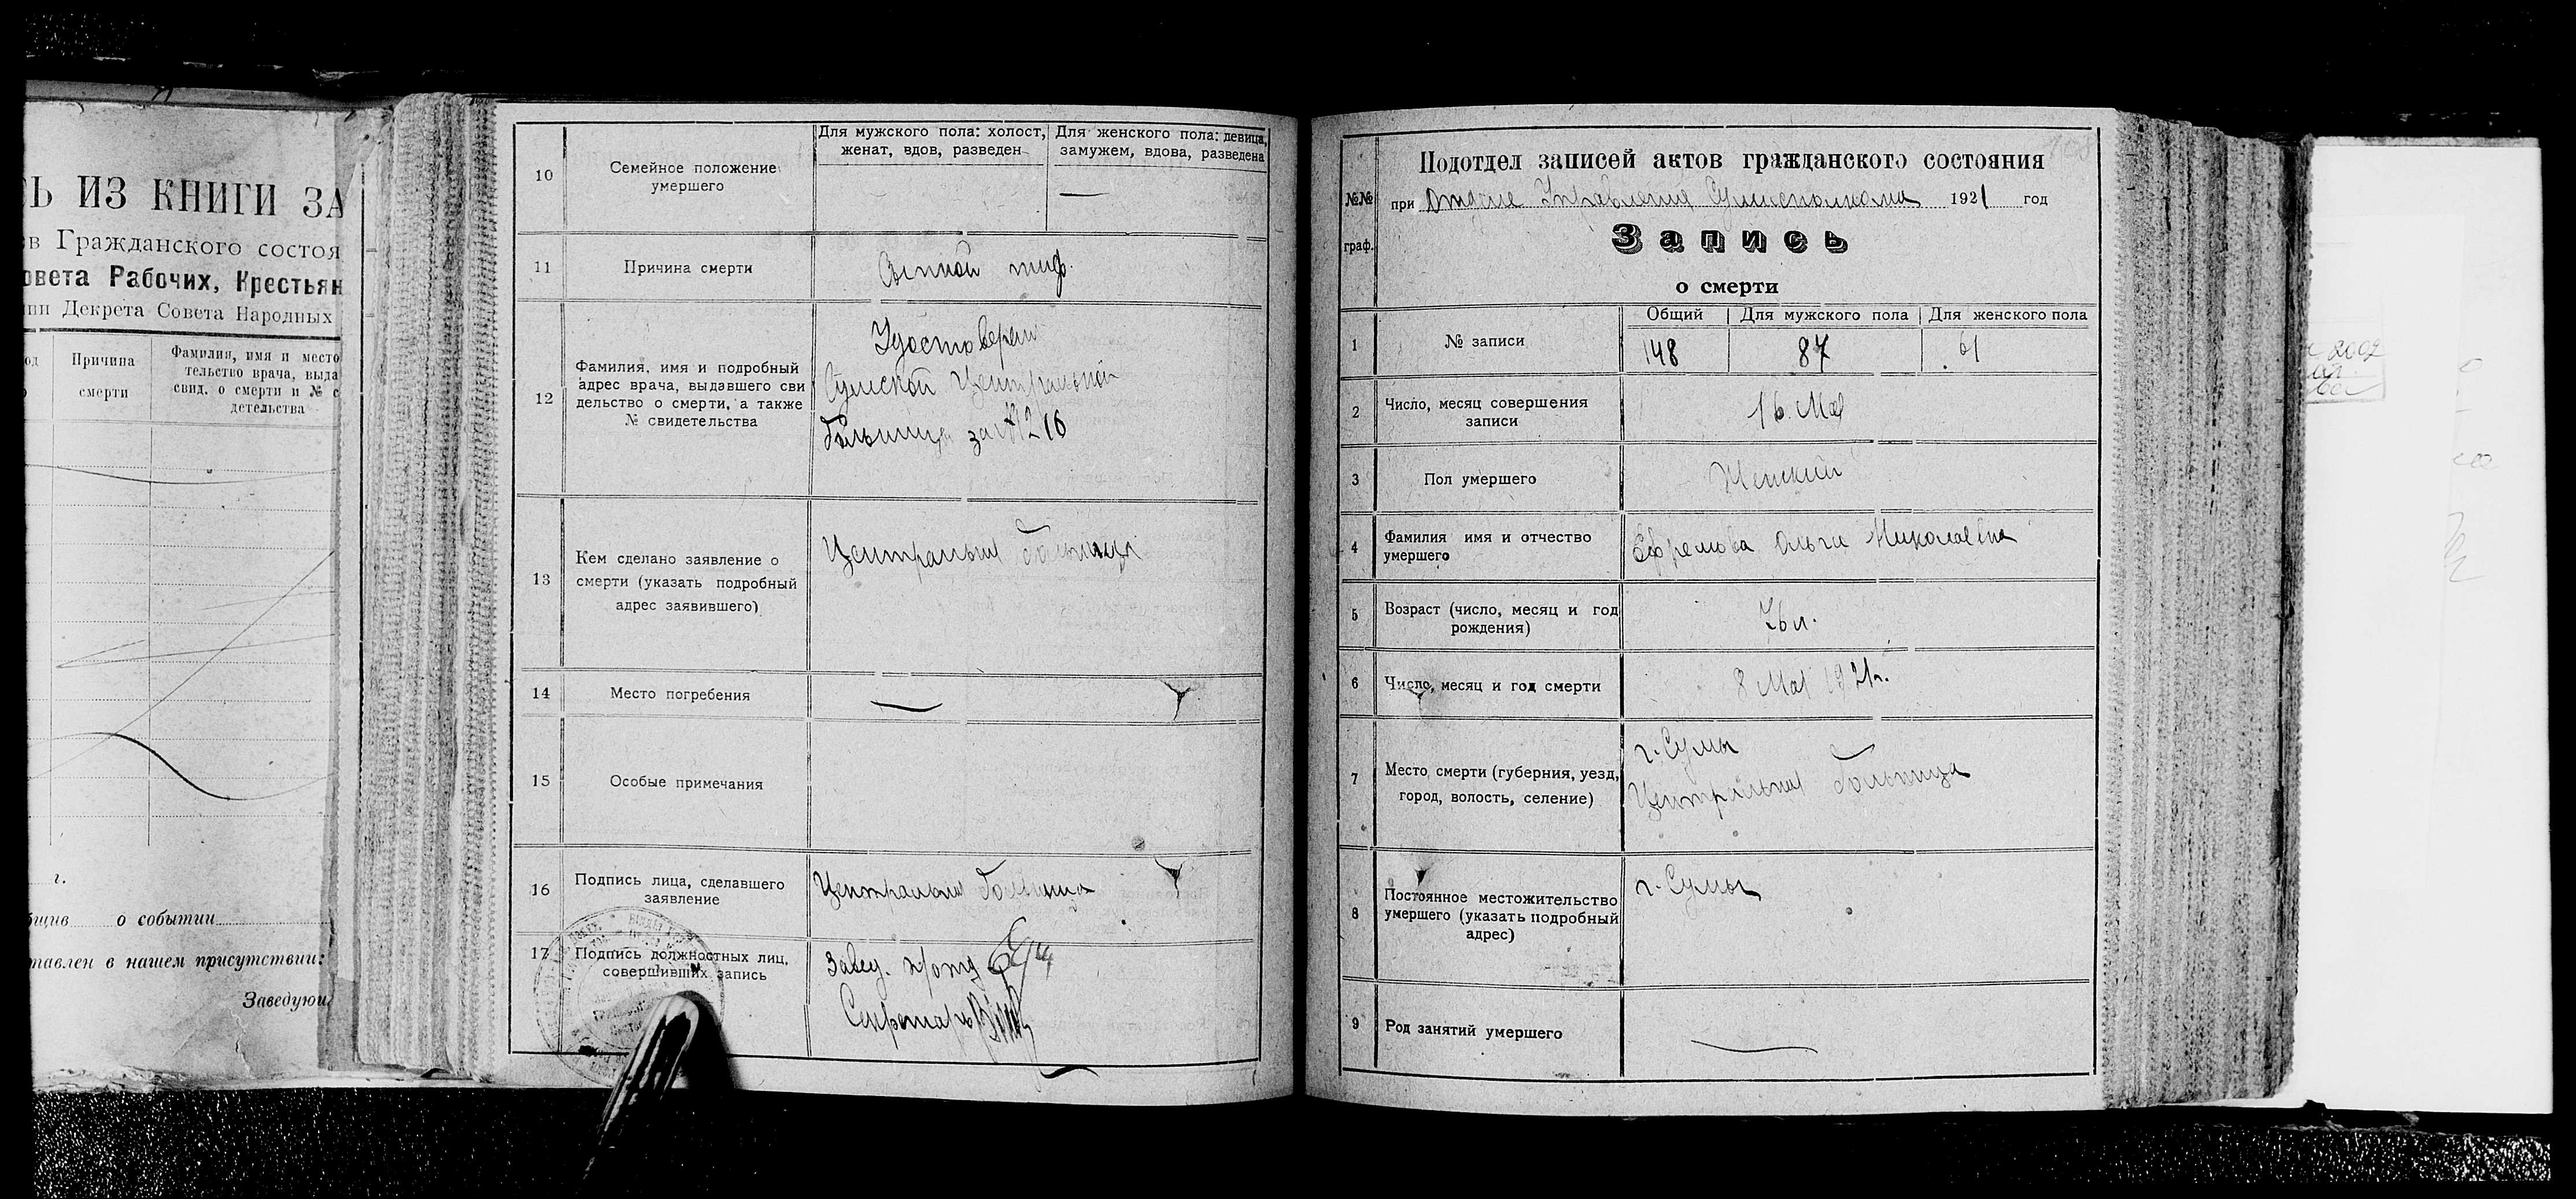 Ь ИЗ КНИГИ ЗА
в Гражданского состоя
овета Рабочих, Крестьян
ии Декрета Совета Народных
од
Причина
смерти
Фамилия, имя и место
тельство врача, выда
свид. о смерти и № с
детельства
г.
бщив о событии
тавлен в нашем присутствии:
Заведующ
10
Семейное положение
умершего
Для мужского пола: холост,
женат, вдов, разведен
Для женского пола: девица,
замужем, вдова, разведена
—
11
Причина смерти
Сыпной тиф.
12
Фамилия, имя и подробный
адрес врача, выдавшего сви
дельство о смерти, а также
№ свидетельства
Удостоверен
Сумской Центральной
больницы за № 216
13
Кем сделано заявление о
смерти (указать подробный
адрес заявившего)
Центральная больница
14
Место погребения
—
15
Особые примечания
16
Подпись лица, сделавшего
заявление
Центральная больница
17
Подпись должностных лиц,
совершивших запись
Завед. п/отд
Секретарь
№№
граф.
Подотдел записей актов гражданского состояния
при Отделе Управления Сумисполкома 1921 год
Запись
о смерти
1
№ записи
Общий
Для мужского пола
Для женского пола
148
87
61
2
Число, месяц совершения
записи
16. Мая
3
Пол умершего
Женский
4
Фамилия имя и отчество
умершего
Ефремова Ольга Николаевна
5
Возраст (число, месяц и год
рождения)
26 л.
6
Число, месяц и год смерти
8 Мая 1921 г.
7
Место смерти (губерния, уезд,
город, волость, селение)
г. Сумы
Центральная больница
8
Постоянное местожительство
умершего (указать подробный
адрес)
г. Сумы
9
Род занятий умершего
—